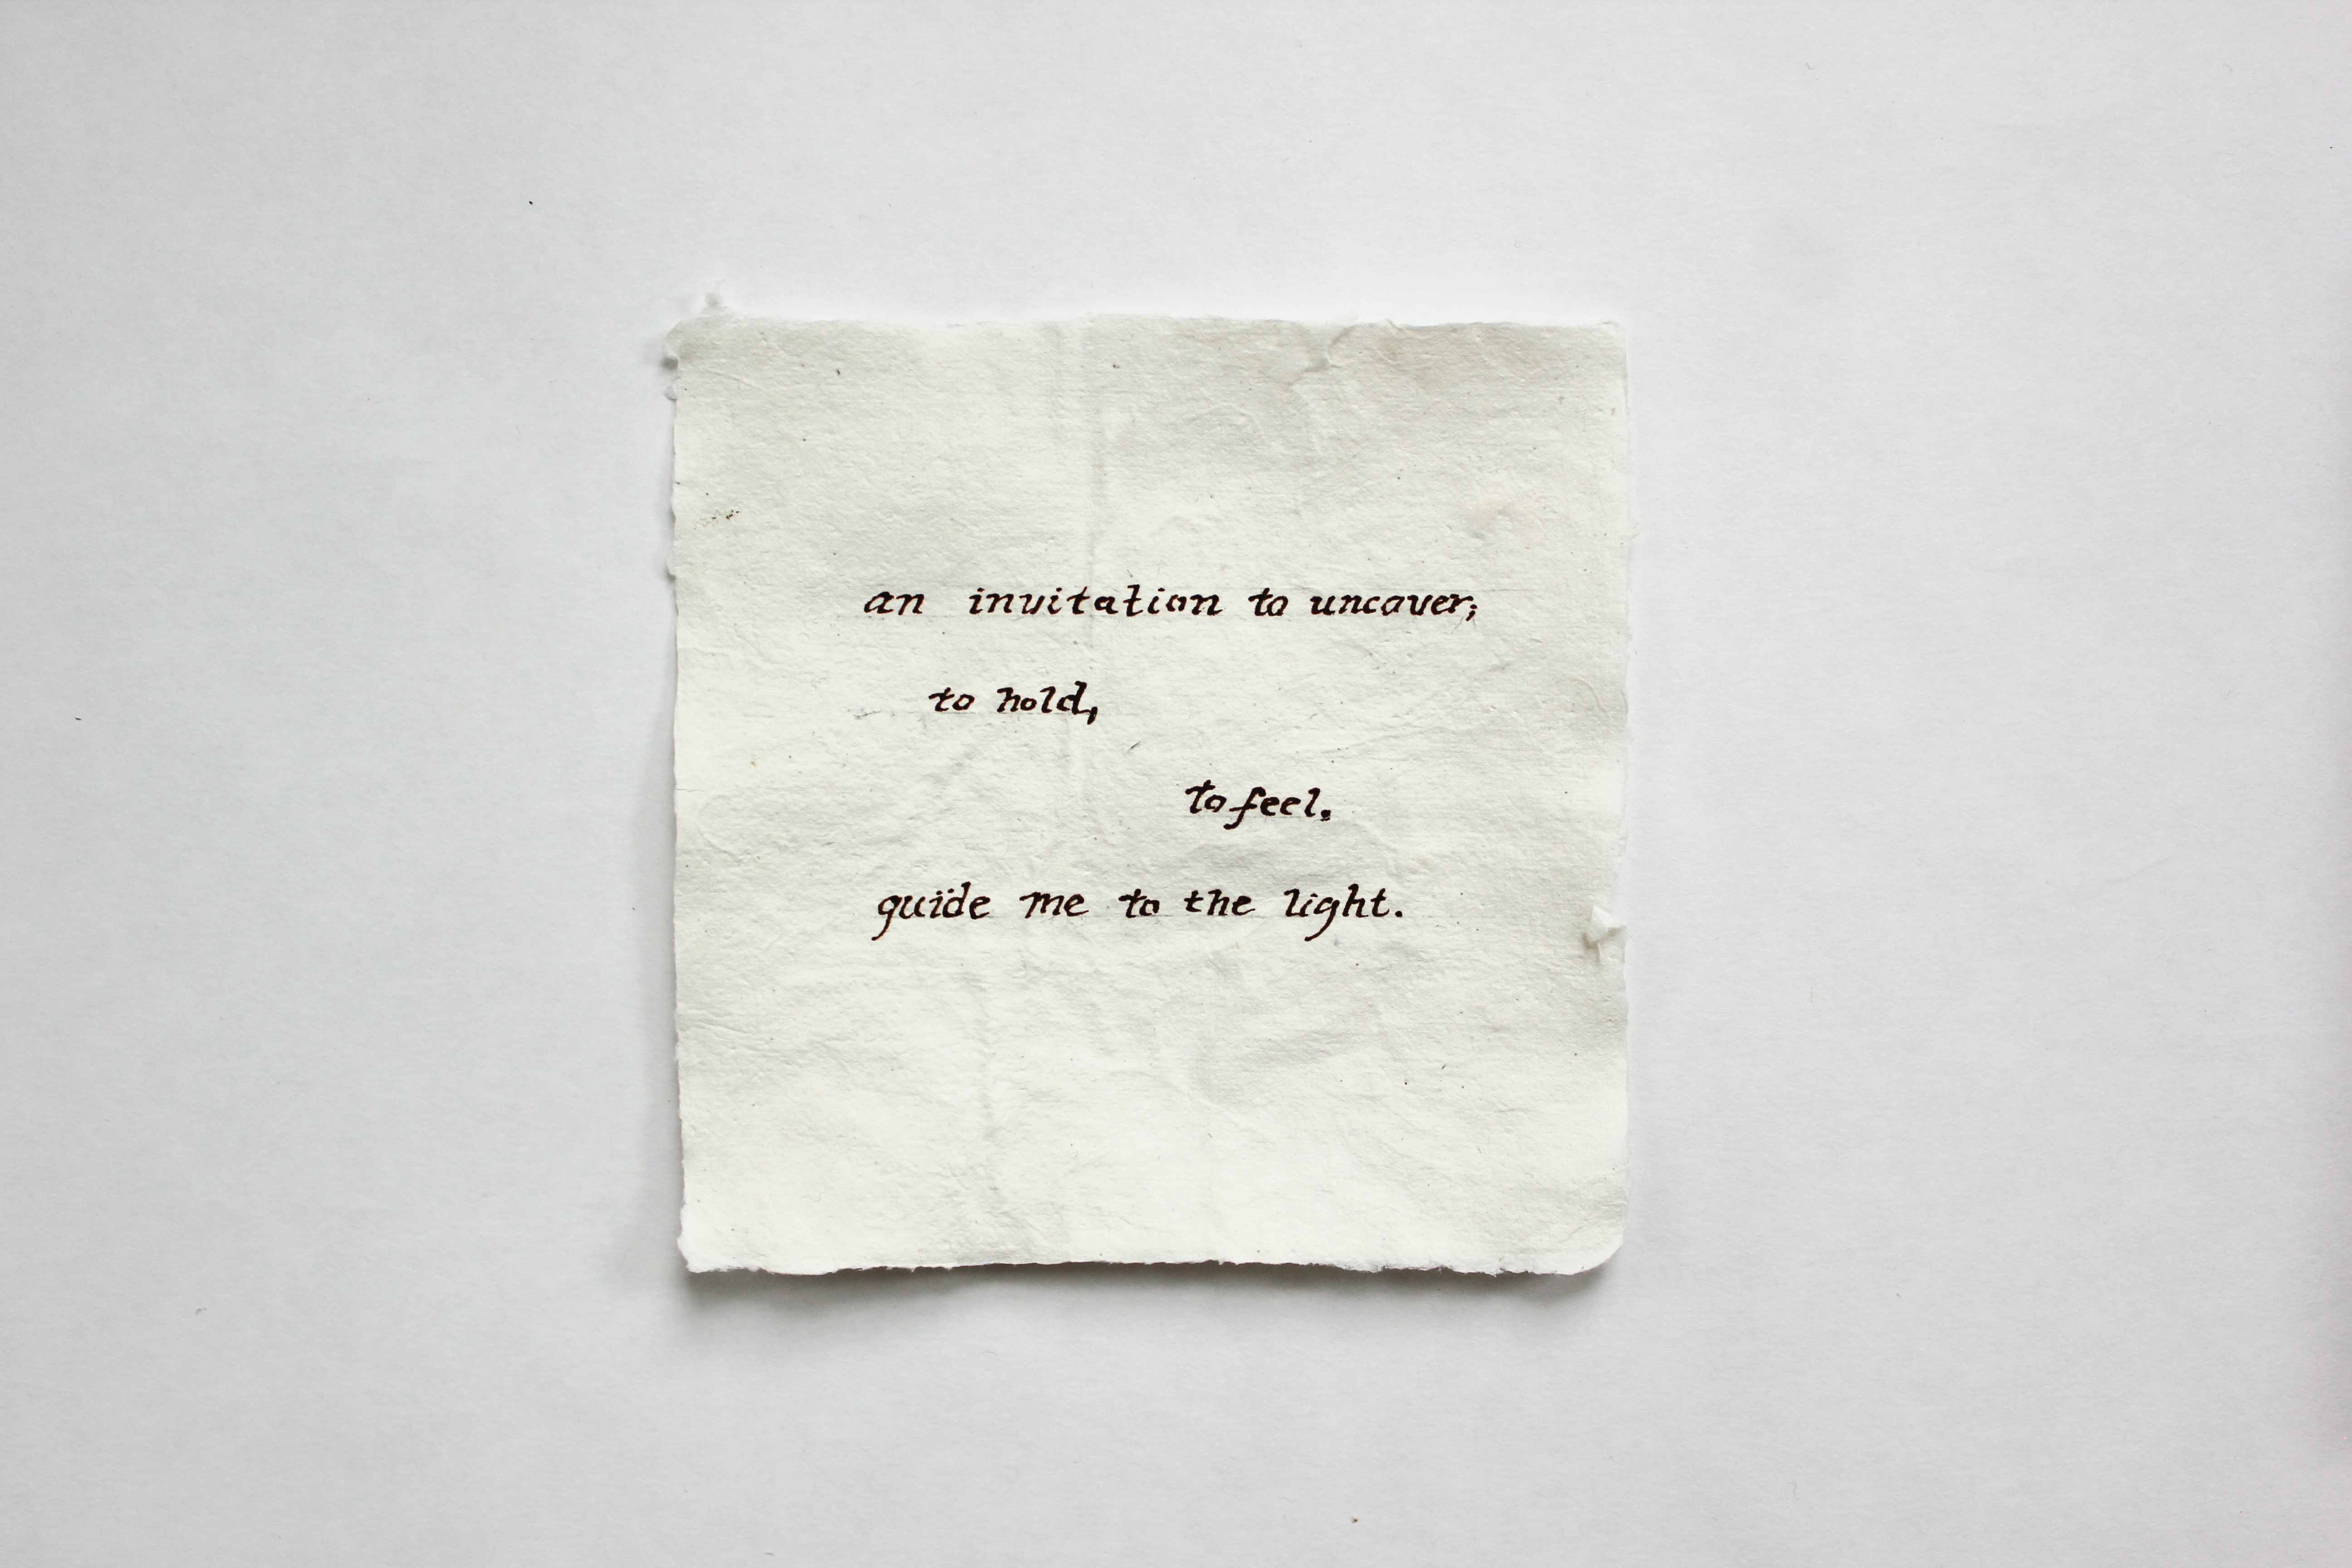 an invitation to uncover;
to hold,
to feel.
guïde me to the light.